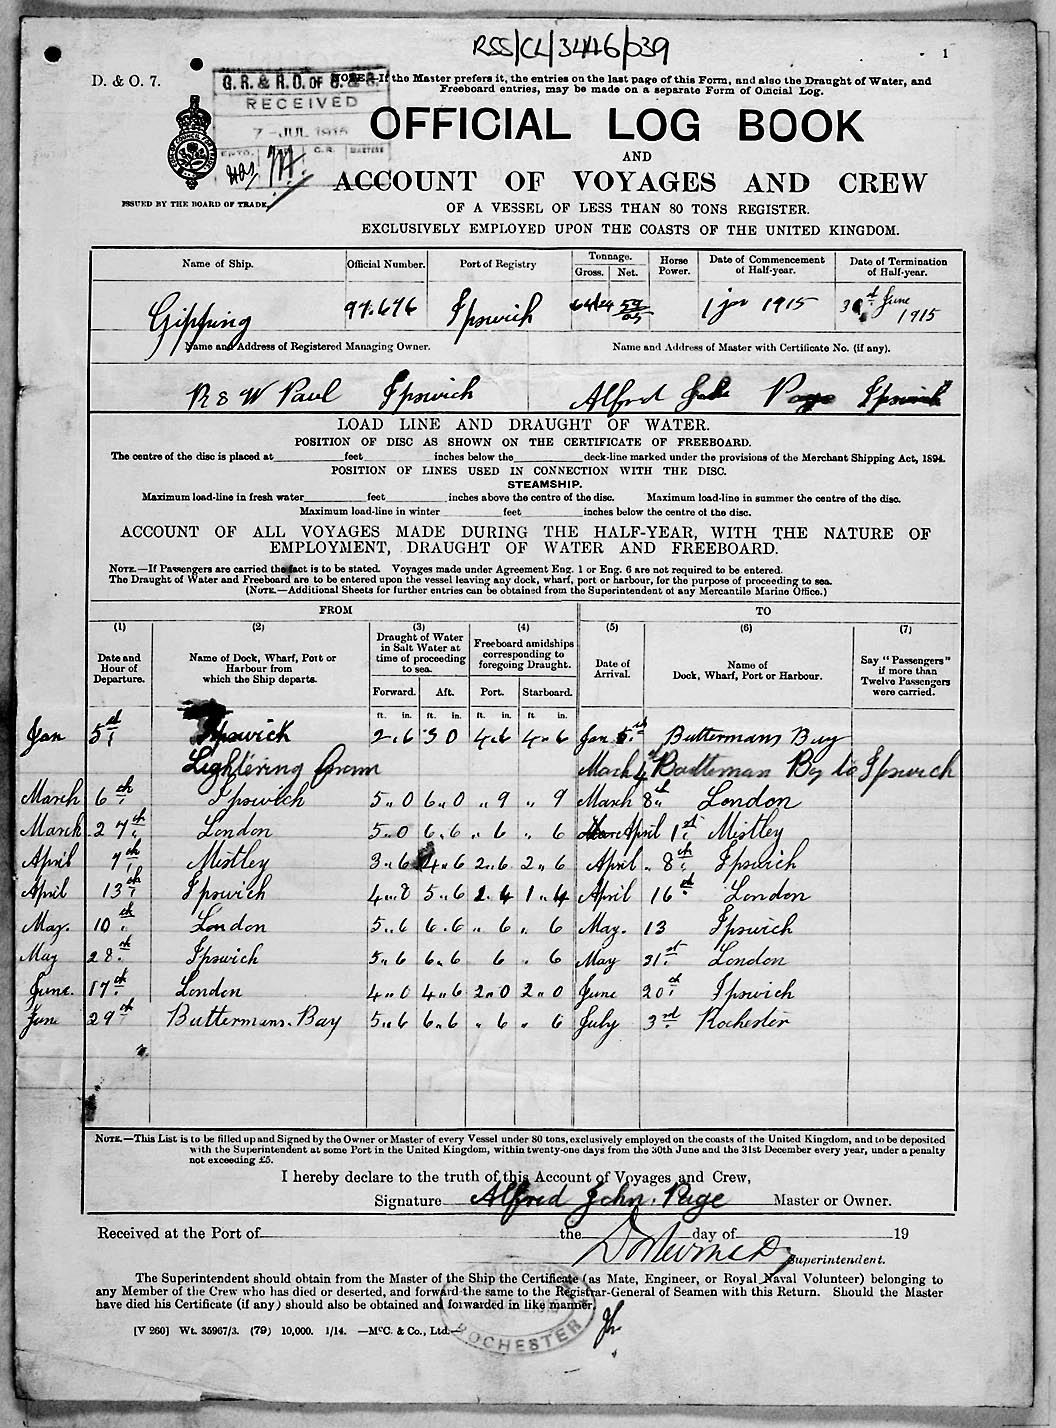 RSS/CL/3446/039
1
D. & O. 7.
G. R. & R. O. OF S. & S.
RECEIVED
7 - JUL 1915
NOTE.—If the Master prefers it, the entries on the last page of this Form, and also the Draught of Water, and
Freeboard entries, may be made on a separate Form of Official Log.
OFFICIAL LOG BOOK
AND
ACCOUNT OF VOYAGES AND CREW
ISSUED BY THE BOARD OF TRADE.
OF A VESSEL OF LESS THAN 80 TONS REGISTER.
EXCLUSIVELY EMPLOYED UPON THE COASTS OF THE UNITED KINGDOM.
Name of Ship. Official Number. Port of Registry Tonnage. Gross. Net. Horse Power. Date of Commencement of Half-year. Date of Termination of Half-year.
Gipping 97.676 Ipswich 59/05 1 jan 1915 30 June 1915
Name and Address of Registered Managing Owner. Name and Address of Master with Certificate No. (if any).
R & W Paul Ipswich Alfred John Page Ipswich
LOAD LINE AND DRAUGHT OF WATER.
POSITION OF DISC AS SHOWN ON THE CERTIFICATE OF FREEBOARD.
The centre of the disc is placed at feet inches below the deck-line marked under the provisions of the Merchant Shipping Act, 1894.
POSITION OF LINES USED IN CONNECTION WITH THE DISC.
STEAMSHIP.
Maximum load-line in fresh water feet inches above the centre of the disc. Maximum load-line in summer the centre of the disc.
Maximum load-line in winter feet inches below the centre of the disc.
ACCOUNT OF ALL VOYAGES MADE DURING THE HALF-YEAR, WITH THE NATURE OF
EMPLOYMENT, DRAUGHT OF WATER AND FREEBOARD.
NOTE.—If Passengers are carried the fact is to be stated. Voyages made under Agreement Eng. 1 or Eng. 6 are not required to be entered.
The Draught of Water and Freeboard are to be entered upon the vessel leaving any dock, wharf, port or harbour, for the purpose of proceeding to sea.
(NOTE.—Additional Sheets for further entries can be obtained from the Superintendent of any Mercantile Marine Office.)
FROM TO
(1) (2) (3) (4) (5) (6) (7)
Date and Hour of Departure. Name of Dock, Wharf, Port or Harbour from which the Ship departs. Draught of Water in Salt Water at time of proceeding to sea. Freeboard amidships corresponding to foregoing Draught. Date of Arrival. Name of Dock, Wharf, Port or Harbour. Say "Passengers" if more than Twelve Passengers were carried.
Forward. Aft. Port. Starboard.
ft. in. ft. in. ft. in. ft. in.
Jan 5th Ipswich 2.6 3 0 4.6 4.6 Jan 5th Buttermans Bay
Lightering Grain March 4th Butterman By to Ipswich
March 6th Ipswich 5.0 6.0 " 9 " 9 March 8th London
March 27th London 5.0 6.6 " 6 " 6 April 1st Mistley
April 7th Mistley 3.6 4.6 2.6 2.6 April 8th Ipswich
April 13th Ipswich 4.8 5.6 1.4 1.4 April 16th London
May. 10th London 5.6 6.6 " 6 " 6 May. 13 Ipswich
May 28th Ipswich 5.6 6.6 6 " 6 May 31st London
June. 17th London 4.0 4.6 2.0 2.0 June 20th Ipswich
June 29th Buttermans. Bay 5.6 6.6 " 6 " 6 July 3rd Rochester
NOTE.—This List is to be filled up and Signed by the Owner or Master of every Vessel under 80 tons, exclusively employed on the coasts of the United Kingdom, and to be deposited
with the Superintendent at some Port in the United Kingdom, within twenty-one days from the 30th June and the 31st December every year, under a penalty
not exceeding £5.
I hereby declare to the truth of this Account of Voyages and Crew,
Signature Alfred John. Page Master or Owner.
Received at the Port of the day of 19
Superintendent.
The Superintendent should obtain from the Master of the Ship the Certificate (as Mate, Engineer, or Royal Naval Volunteer) belonging to
any Member of the Crew who has died or deserted, and forward the same to the Registrar-General of Seamen with this Return. Should the Master
have died his Certificate (if any) should also be obtained and forwarded in like manner.
[V 260] Wt. 35967/3. (79) 10,000. 1/14. —McC. & Co., Ltd.—
ROCHESTER